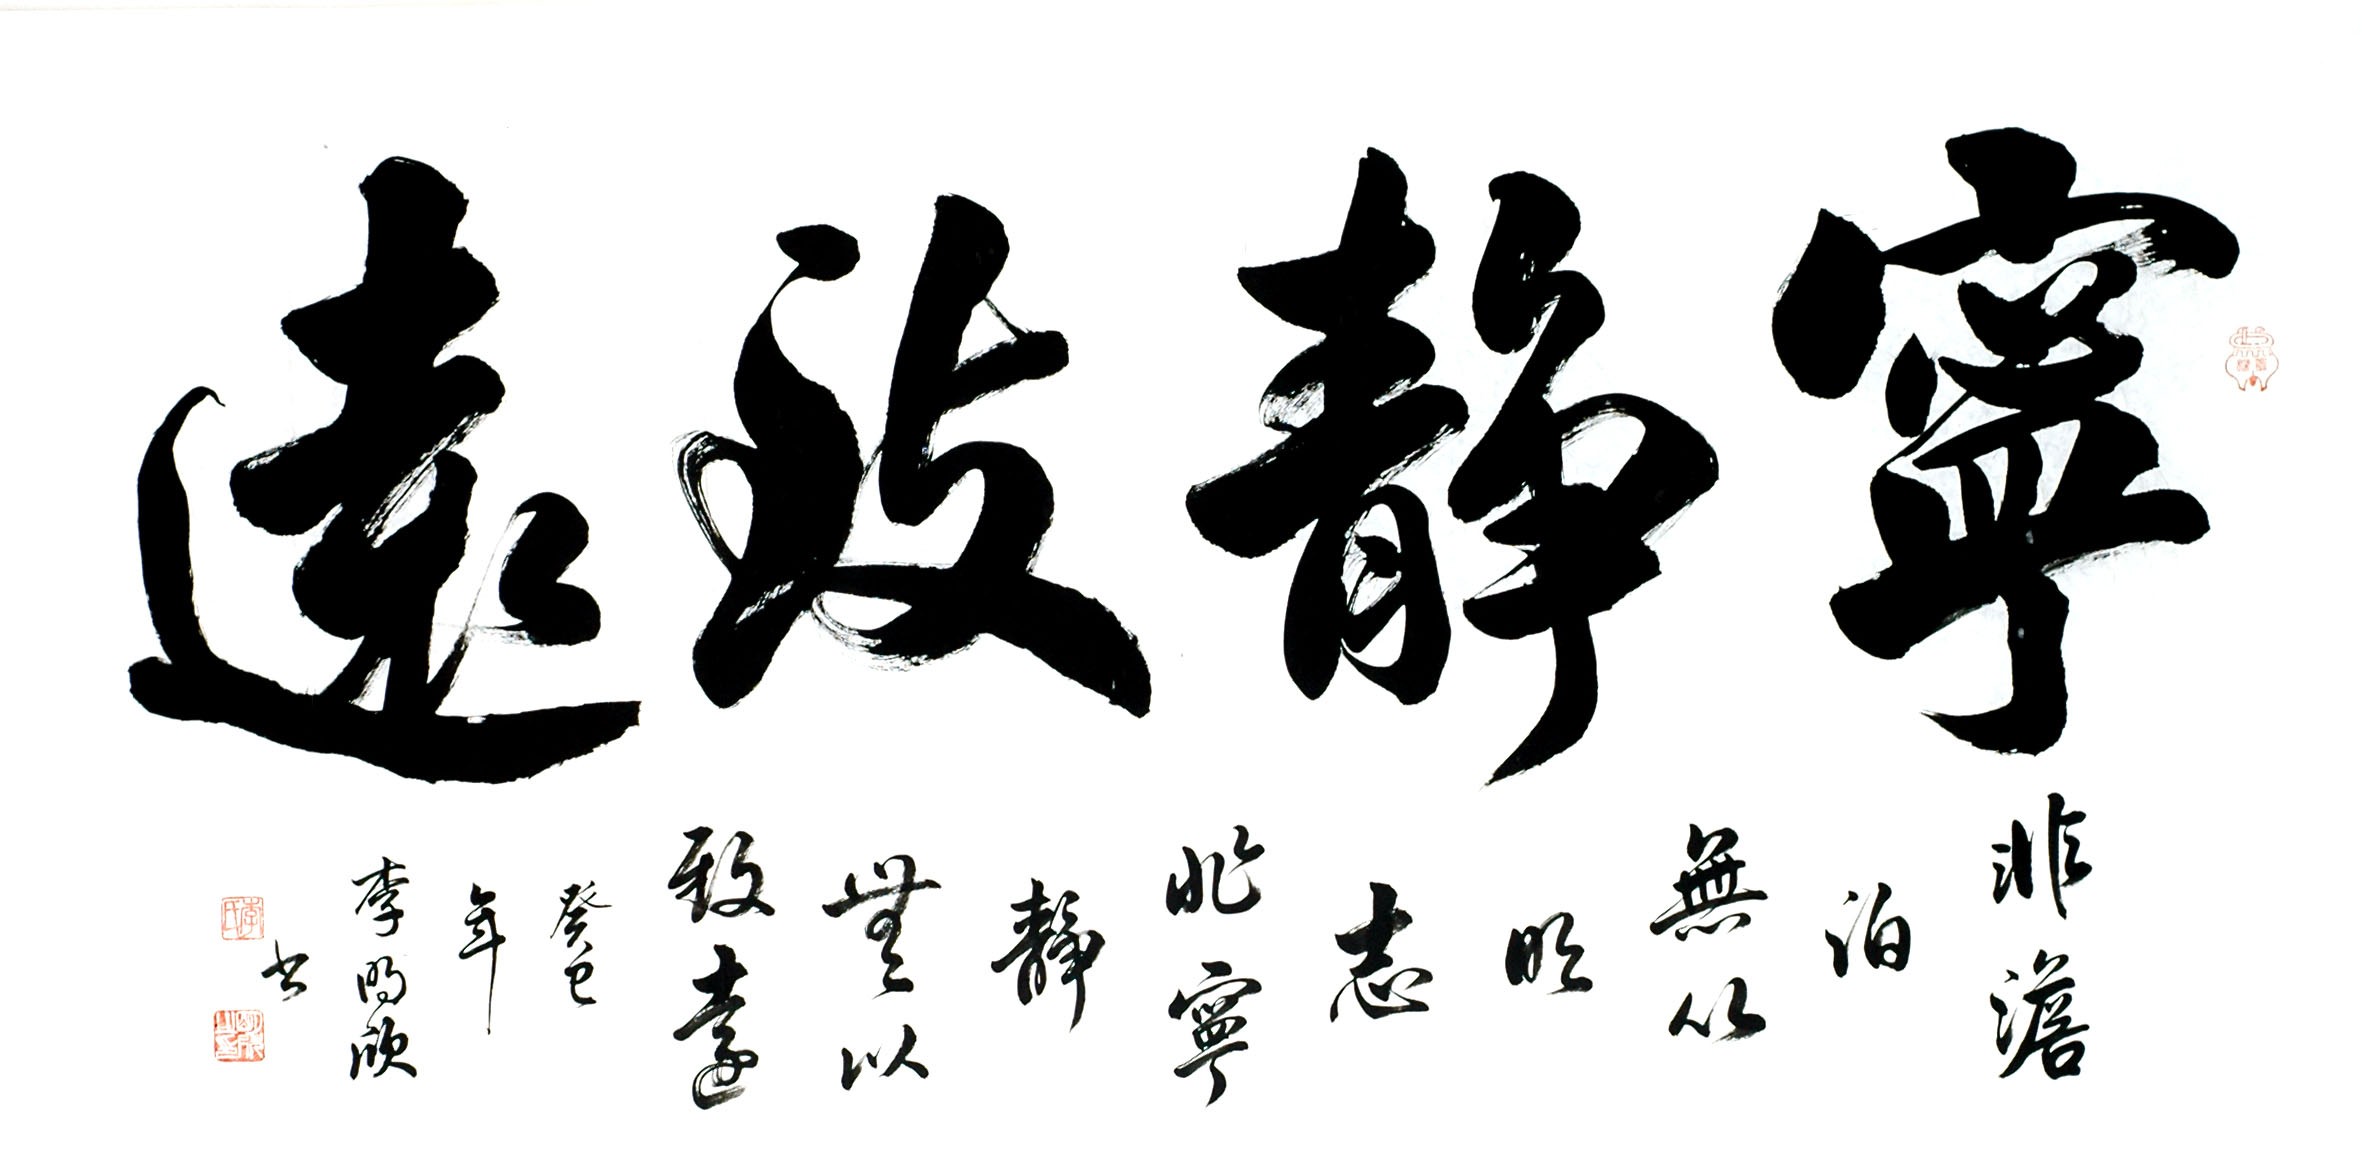 寧靜致遠
非澹泊無以明志非寧靜無以致遠
癸巳年
李明欣書